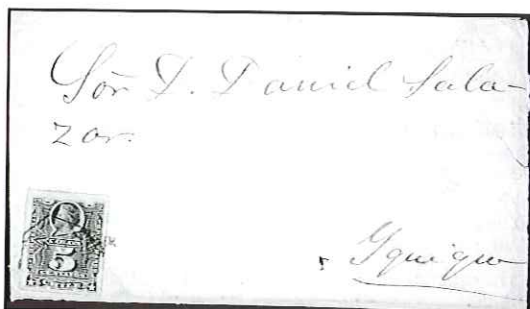 Sõr D. Daniel Sala-
zar.
Yquique
5